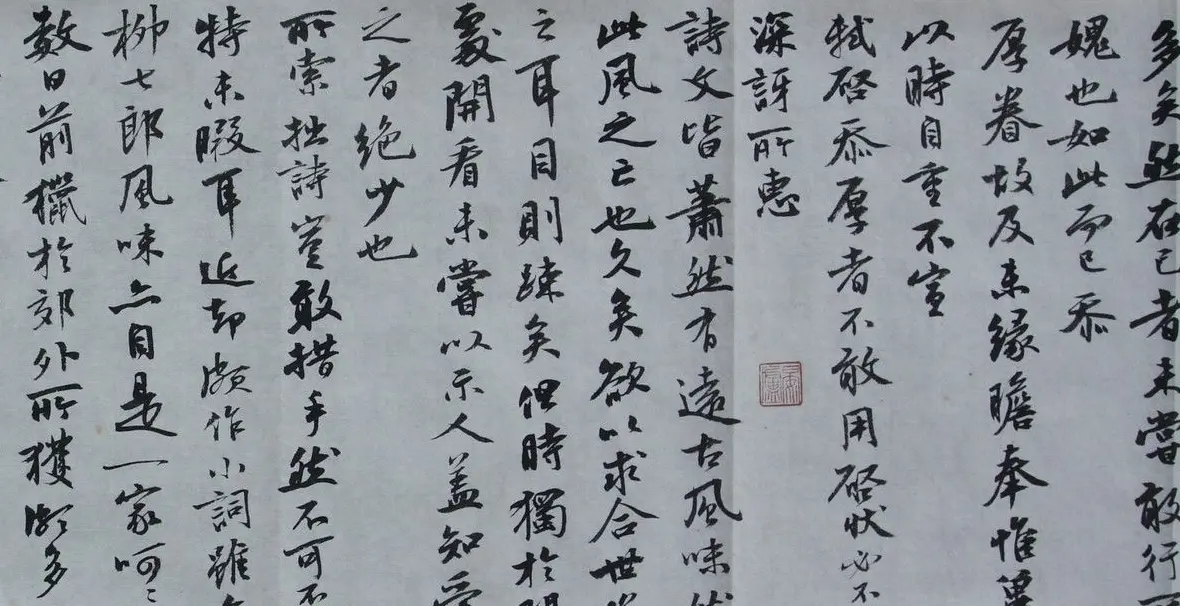 多矣然在己者未嘗敢行
媿也如此而已忝
厚眷故及未緣瞻奉惟冀
以時自重不宣
軾啓忝厚者不敢用啓狀必不
深訝所惠
詩文皆蕭然有遠古風味然
此風之亡也久矣欲以求合世
之耳目則疎矣但時獨於閒
處開看未嘗以示人蓋知愛
之者絶少也
所索拙詩豈敢措手然不可不
特未暇耳近却頗作小詞雖無
柳七郎風味亦自是一家呵呵
數日前獵於郊外所獲頗多